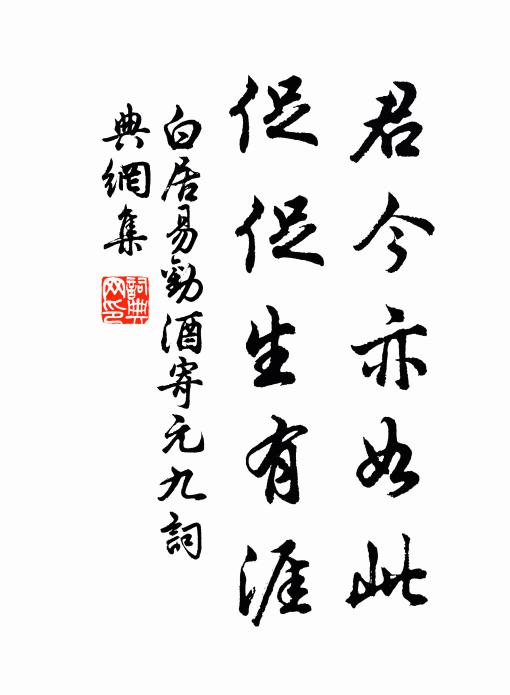 君今亦如此
促促生有涯
白居易勸酒寄元九詞
典網集
詞典
网印